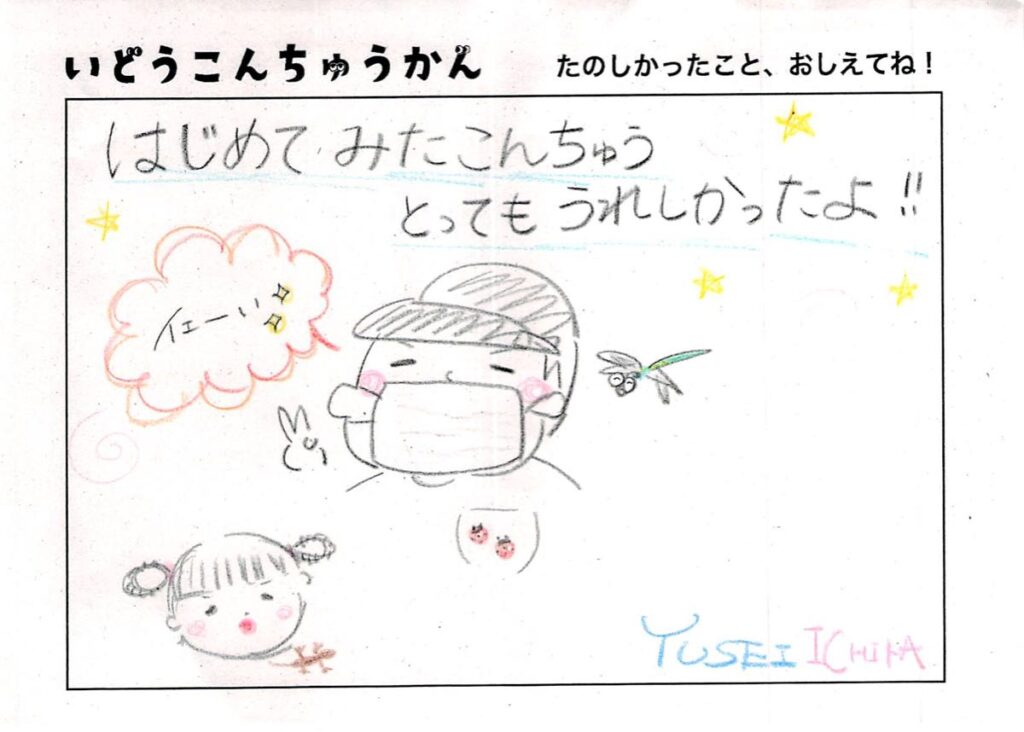 いどうこんちゅうかん
たのしかったこと、おしえてね！
はじめて みたこんちゅう
とっても うれしかったよ!!
イェーい
YUSEI ICHIKA